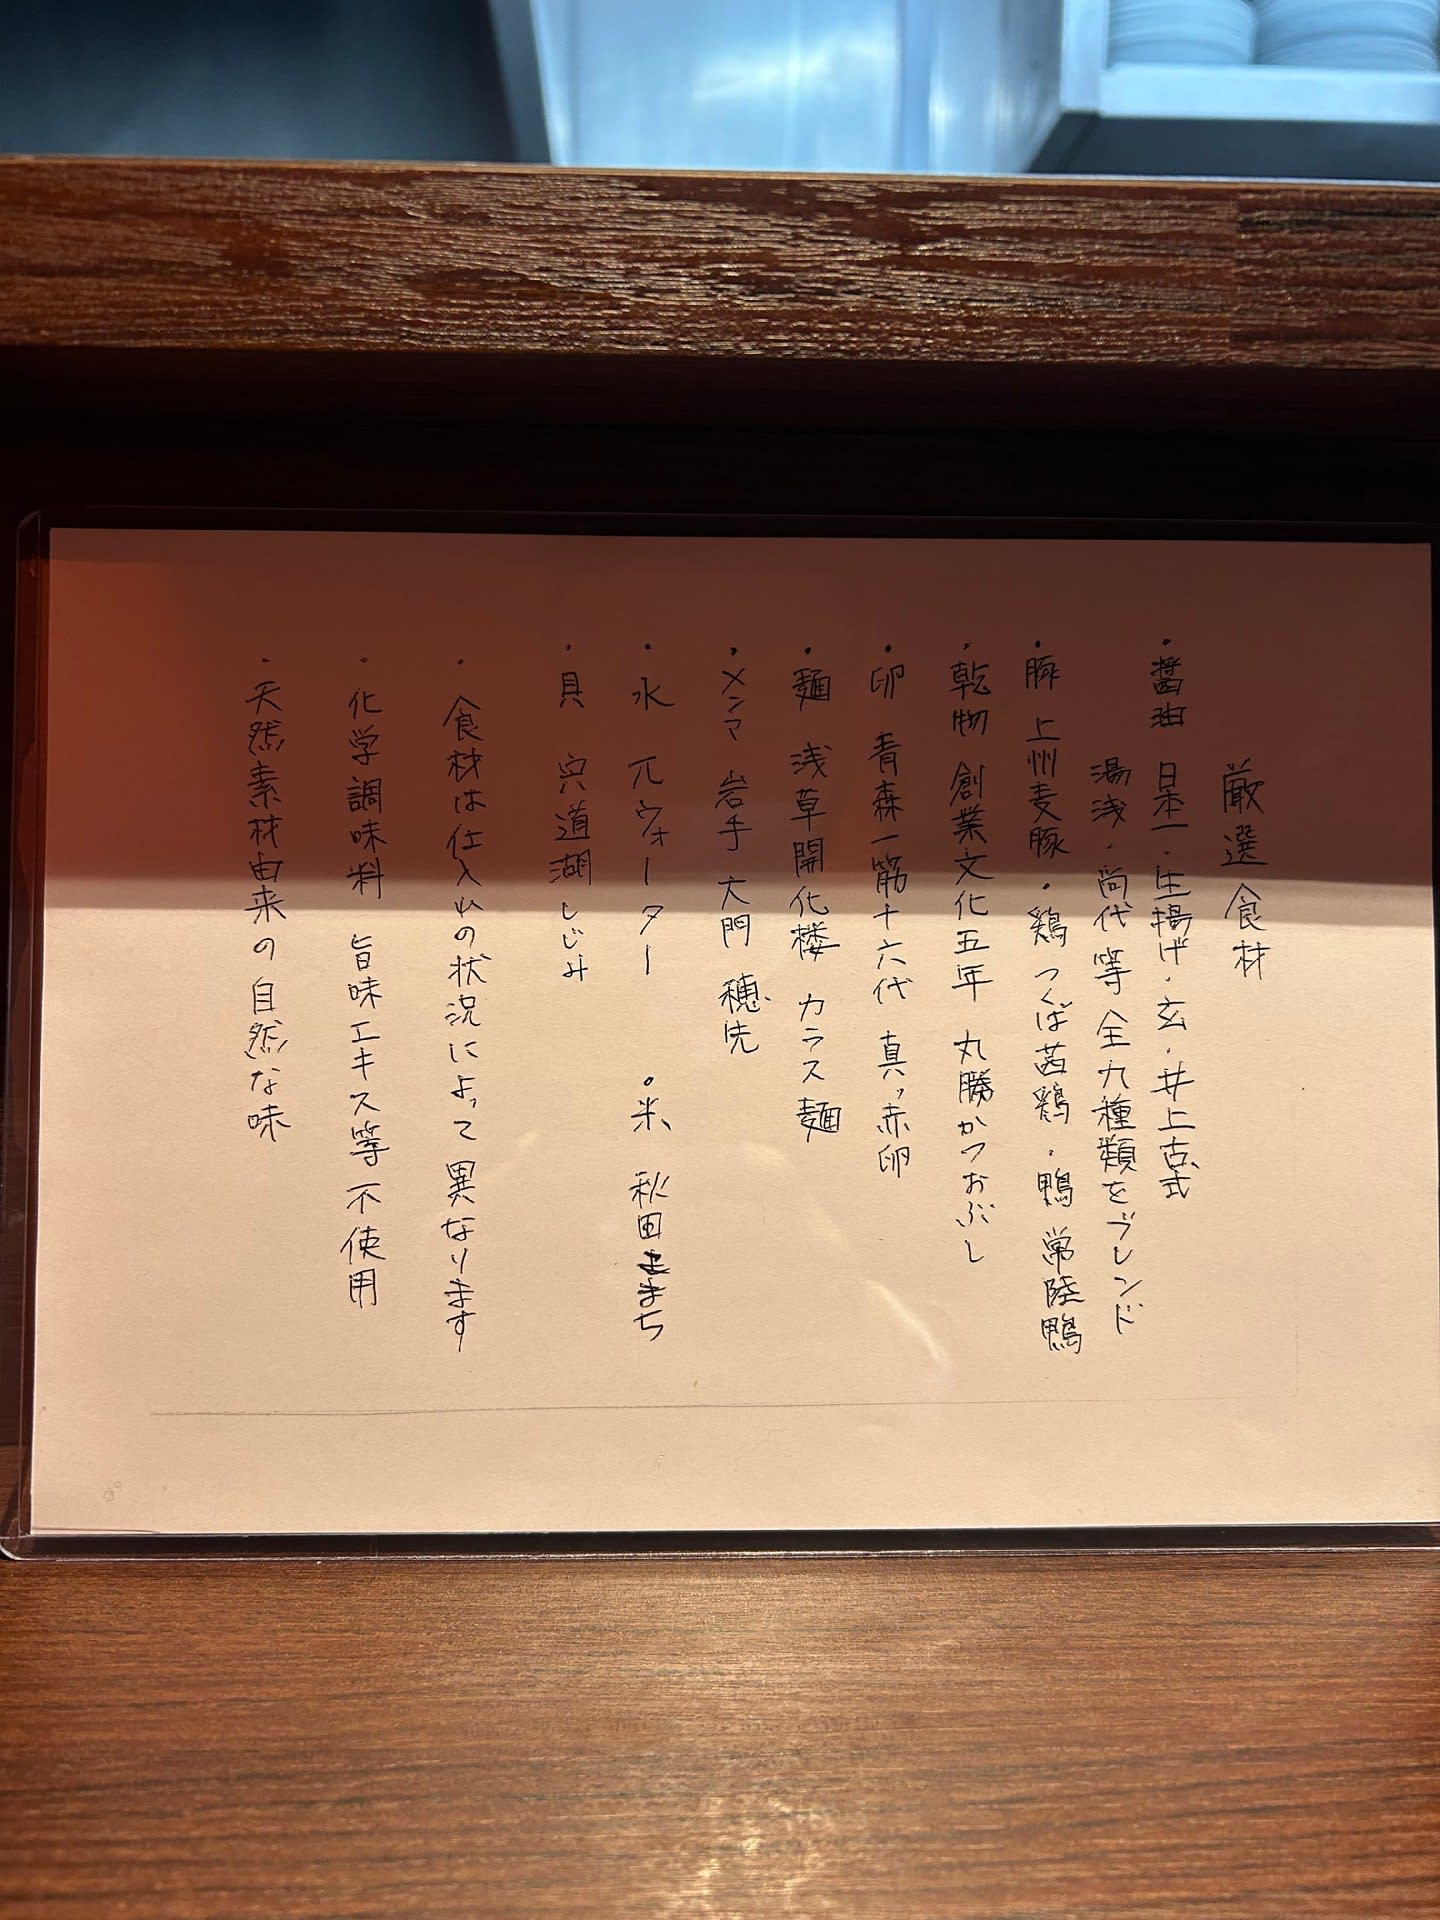 厳選食材
・醤油 日本一・生揚げ・玄・井上古式
湯浅・尚代等 全九種類をブレンド
・豚 上州麦豚・鶏 つくば茜鶏・鴨 常陸鴨
・乾物 創業文化五年 丸勝かつおぶし
・卵 青森一筋十六代 真ッ赤卵
・麺 浅草開化楼 カラス麺
・メンマ 岩手 大門 穂先
・水 πウォーター ・米 秋田こまち
・貝 宍道湖しじみ
・食材は仕入れの状況によって異なります
・化学調味料 旨味エキス等不使用
・天然素材由来の自然な味